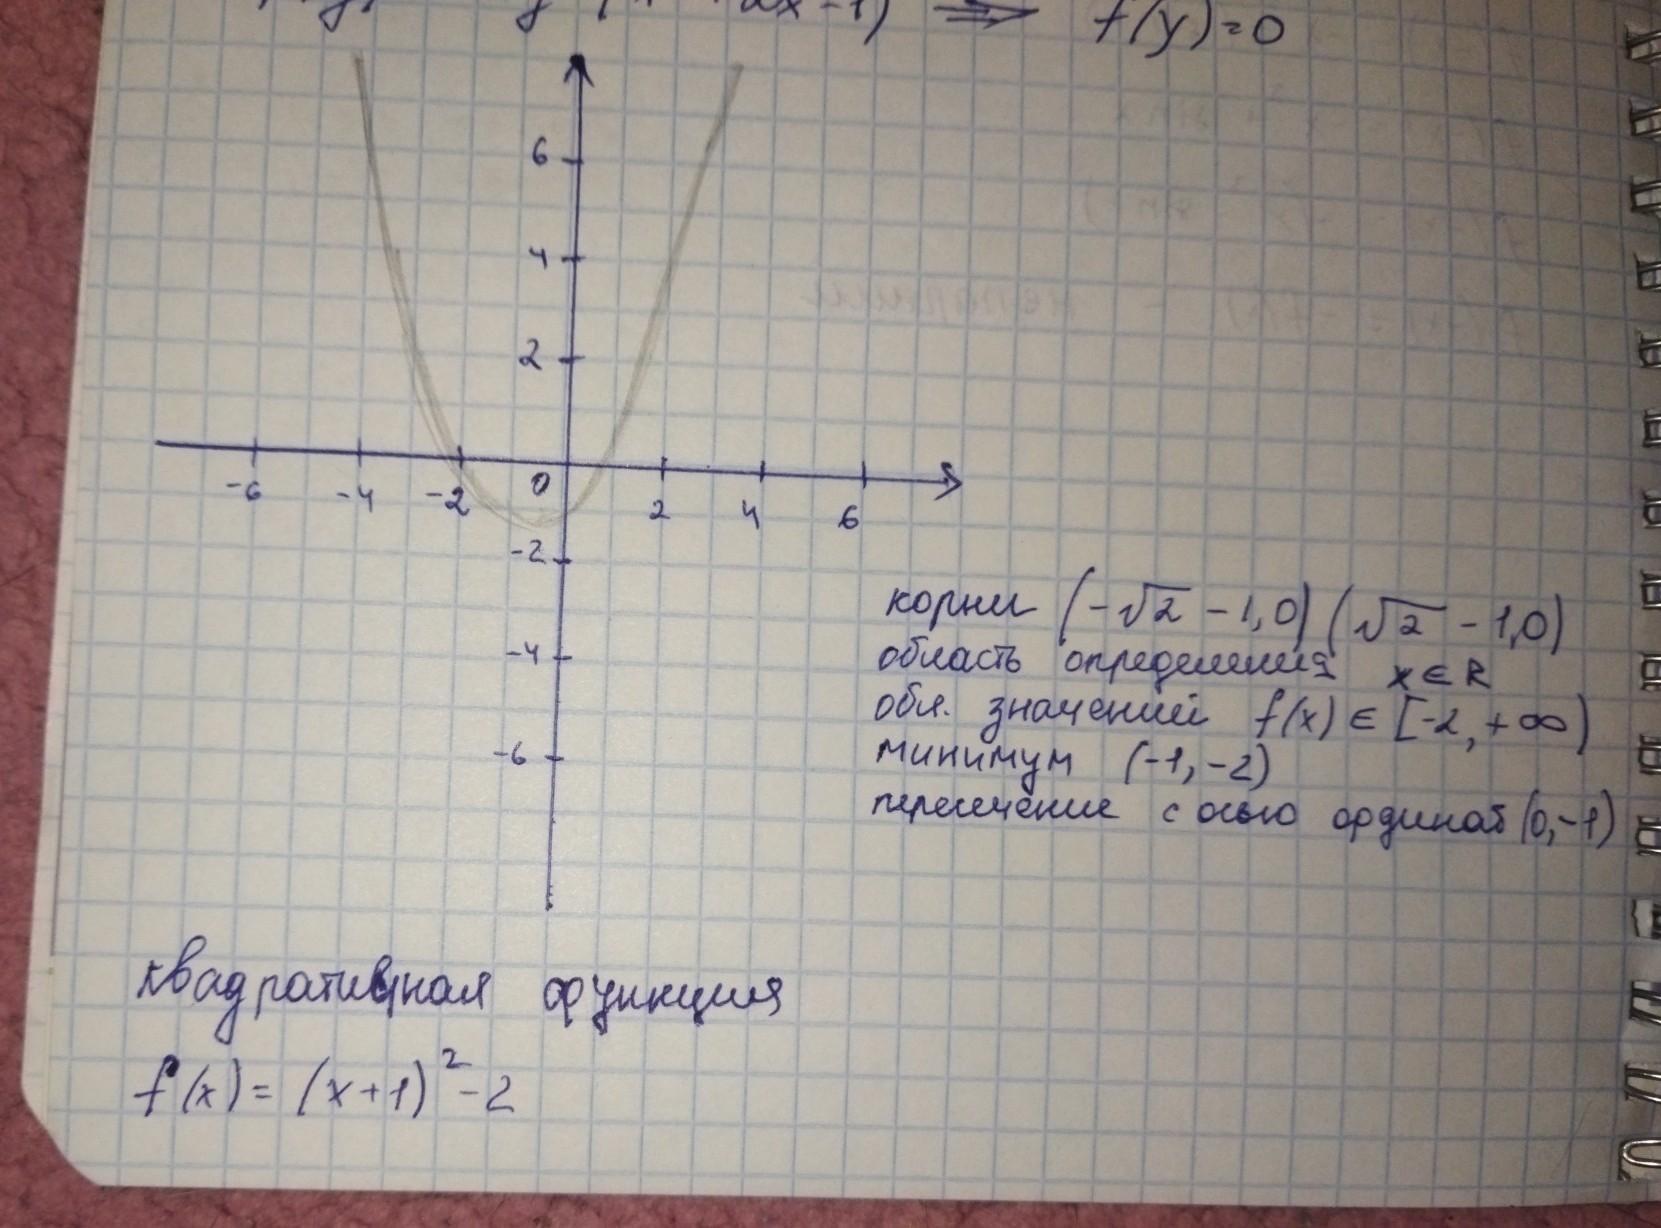 2x-1) ⇒ f(y)=0
6
4
2
-6 -4 -2 0 2 4 6
-2
-4
-6
корни (-√2 -1,0) (√2 -1,0)
область определения x∈R
обл. значений f(x) ∈ [-2, +∞)
минимум (-1,-2)
пересечение с осью ординат (0,-1)
квадративная функция
f(x) = (x+1)²-2